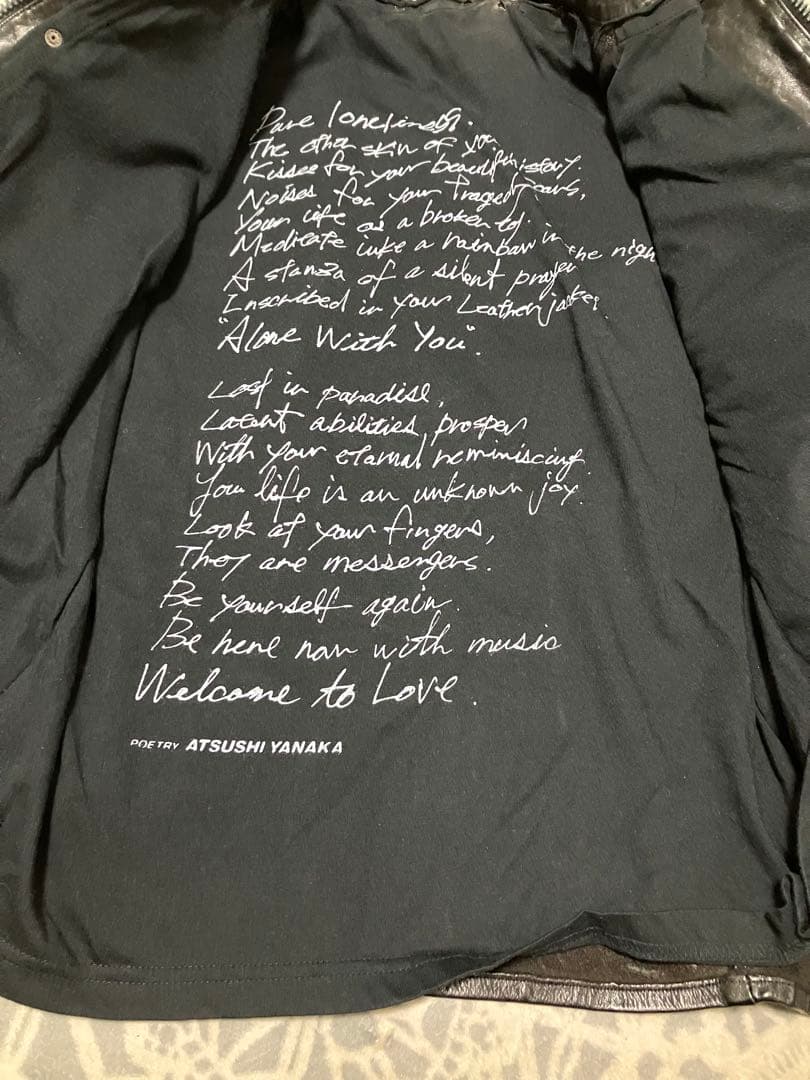 Pure loneliness.
The other skin of you
Kisses for your beautiful history.
Noises for your Tragedy tears,
Your life as a broken toy.
Medicate like a rainbow in the night
A stanza of a silent prayer
Inscribed in your Leather jacket.
"Alone With You".
Lost in paradise,
Latent abilities, prosper
With your eternal reminiscing.
Your life is an unknown joy.
Look at your fingers,
They are messengers.
Be yourself again.
Be here now with music
Welcome to Love.
POETRY ATSUSHI YANAKA